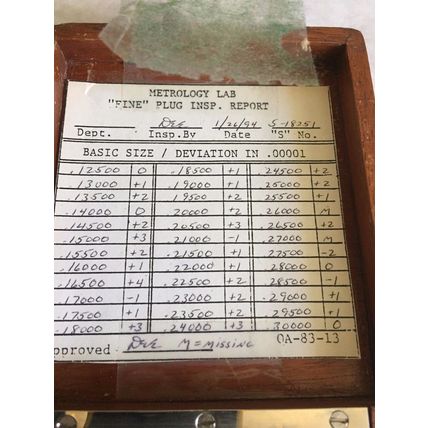 METROLOGY LAB
"FINE" PLUG INSP. REPORT
1/26/94 S-18251
Dept. Insp.By Date "S" No.
BASIC SIZE / DEVIATION IN .00001
.12500 0 .18500 +1 .24500 +2
.13000 +1 .19000 +1 .25000 +2
.13500 +2 .19500 +2 .25500 +1
.14000 0 .20000 +2 .26000 M
.14500 +2 .20500 +3 .26500 +2
.15000 +3 .21000 -1 .27000 M
.15500 +2 .21500 +1 .27500 -2
.16000 +1 .22000 +1 .28000 0
.16500 +4 .22500 +2 .28500 -1
.17000 -1 .23000 +2 .29000 +1
.17500 +1 .23500 +2 .29500 +1
.18000 +3 .24000 +3 .30000 0
pproved M = MISSING OA-83-13